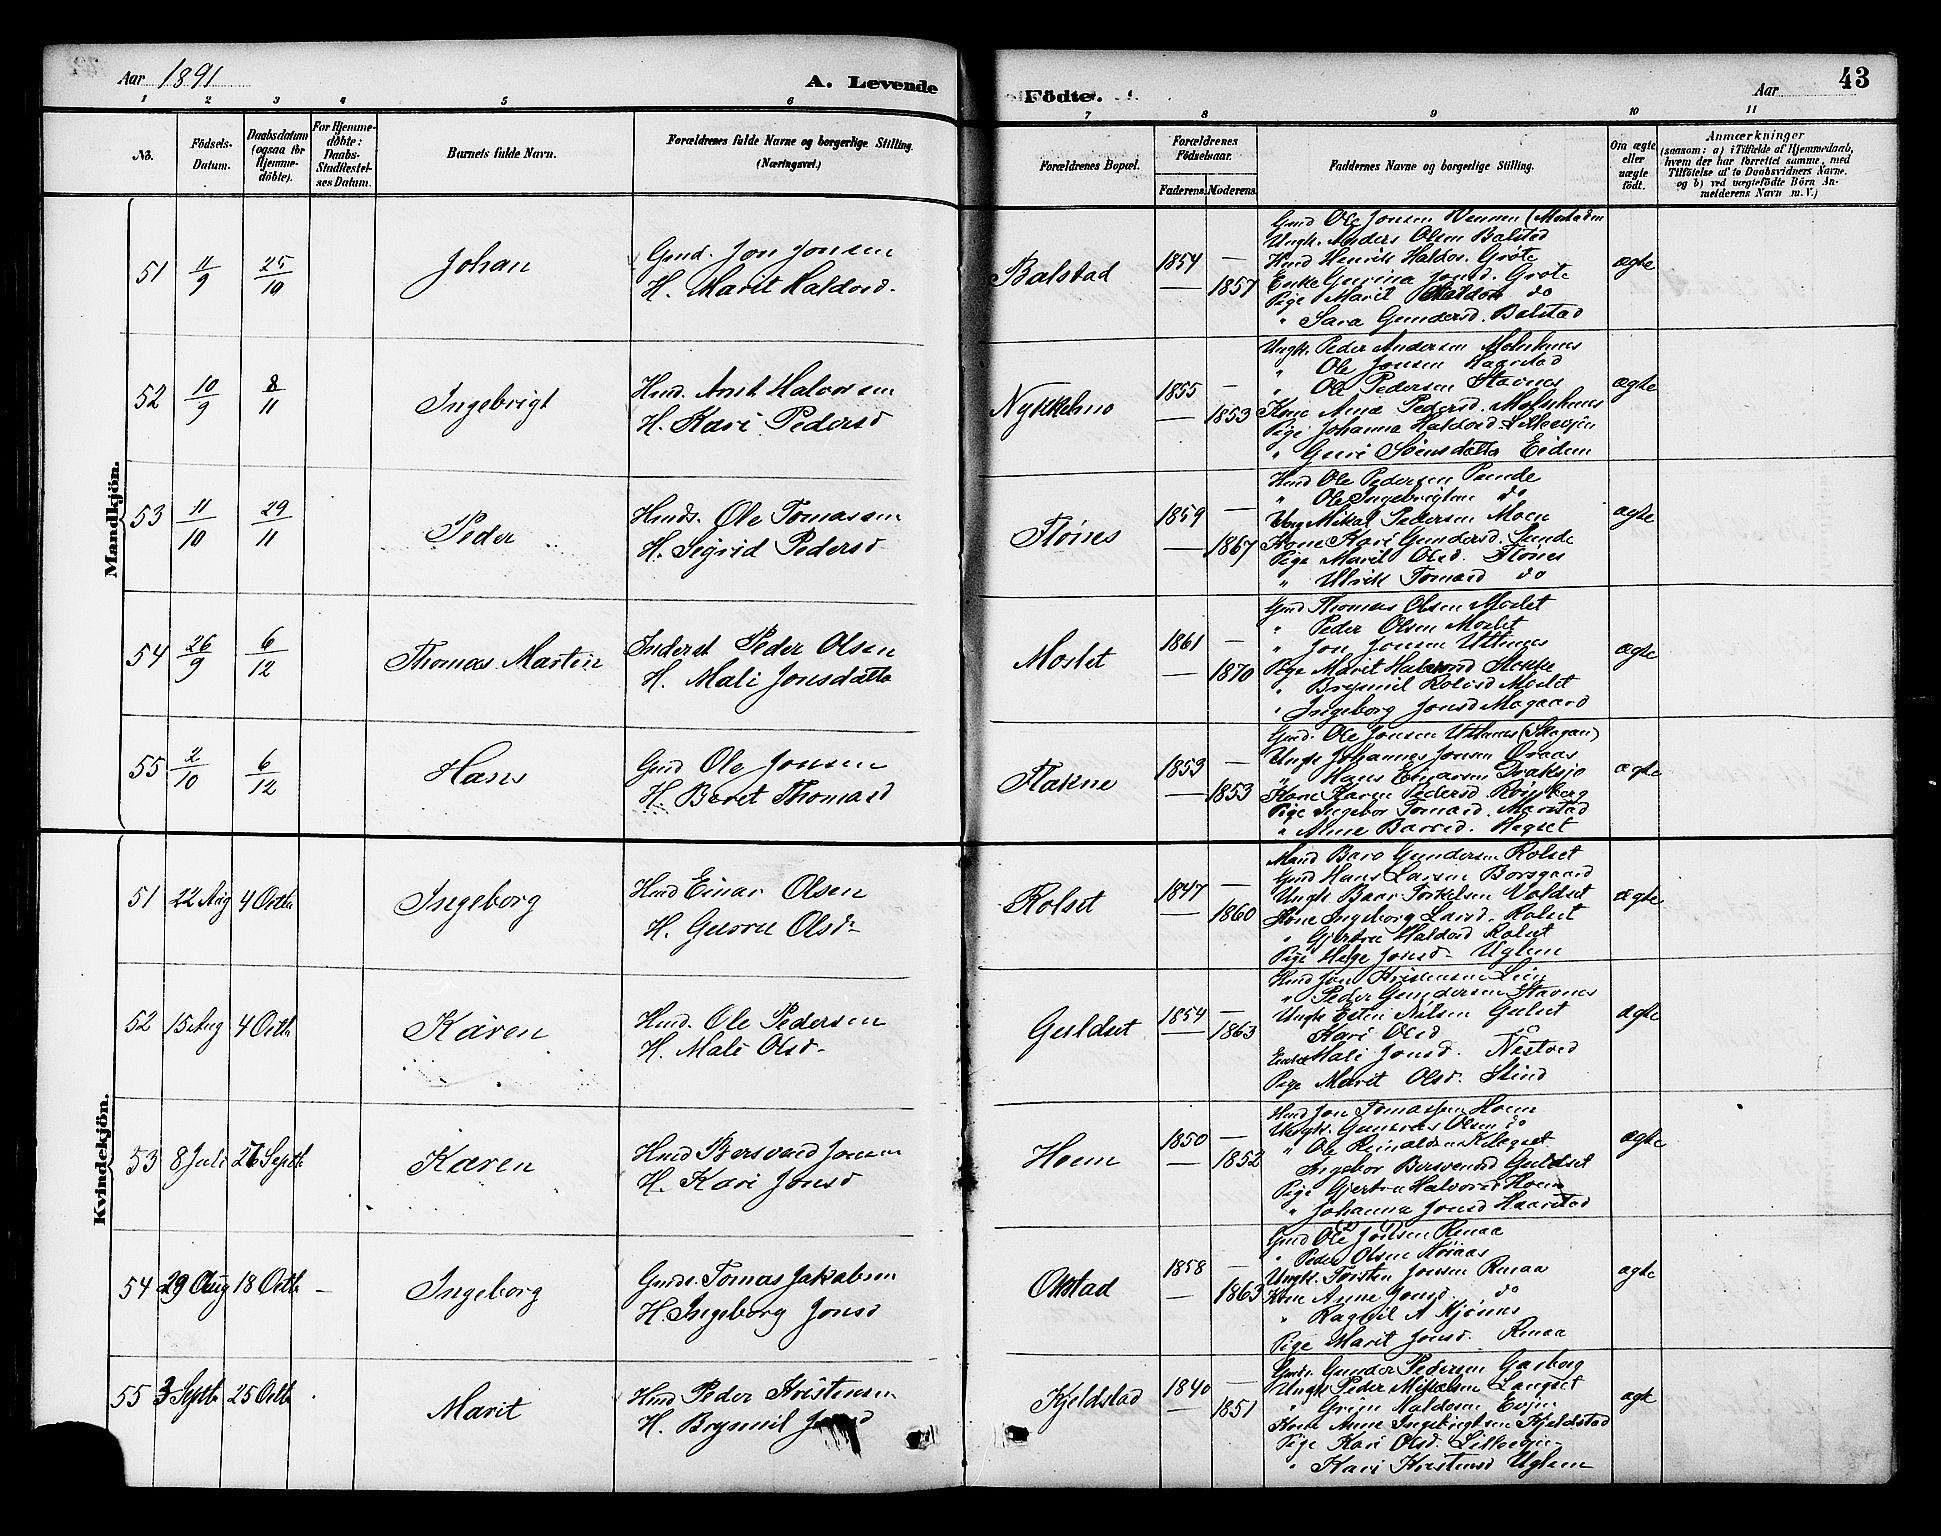 Aar 1891
A. Levende Födte.
Aar
43
1 2 3 4 5 6 7 8 9 10 11
No.
Födsels-Datum.
Daabsdatum (ogsaa for Hjemmedöbte).
For Hjemmedöbte: Daabs-Stadfæstelses Datum.
Barnets fulde Navn.
Forældrenes fulde Navne og borgerlige Stilling. (Næringsvei.)
Forældrenes Bopæl.
Forældrenes Födselsaar.
Faderens. Moderens.
Faddernes Navne og borgerlige Stilling.
Om ægte eller uægte födt.
Anmærkninger (saasom: a) i Tilfælde af Hjemmedaab, hvem der har forrettet samme, med Tilföielse af to Daabsvidners Navne. og b) ved uægtefödte Börn Anmelderens Navn m. V.)
Mandkjön.
51 11/9 25/10 Johan
Gmd. Jon Jonsen
H. Marit Haldosd.
Balstad 1854 — 1857
Gmd Ole Jonsen Wennen (Mostadm
Ungk. Anders Olsen Balstad
Hmd Henrik Haldos. Gröte
Enke Gurina Jonsd. Gröte
Pige Marit Haldos do
" Sara Gundersd. Balstad
ægte
52 10/9 8/11 Ingebrigt
Hmd. Arnt Halvorsen
H. Kari Pedersd
Nykkelmo 1855 — 1853
Ungk. Peder Andersen Molnhenes
" Ole Jonsen Hagestad
" Ole Pedersen Stavnes
Kone Anne Pedersd. Molnhenes
Pige Johanna Haldosd. Lillevjen
" Guri Sörensdatter Eidem
ægte
53 11/10 29/11 Peder
Hmds. Ole Tomassen
H. Sigrid Pedersd
Flönes 1859 — 1867
Hmd Ole Pedersen Sunde
" Ole Ingebrigtsen do
Ung Mikal Pedersen Moen
Kone Kari Gundersd. Sunde
Pige Marit Olsd. Flönes
" Ulrik Tomasd do
ægte
54 26/9 6/12 Thomas Martin
Inderst Peder Olsen
H. Mali Jonsdatter
Moslet 1861 — 1870
Gmd Thomas Olsen Moslet
" Peder Olsen Moslet
" Jon Jonsen Uthenes
Pige Marit Halvorsd
" Brynhil Rolvsd Moslet
" Ingeborg Jonsd Mogaard
ægte
55 2/10 6/12 Hans
Gmd Ole Jonsen
H. Beret Thomasd
Flakne 1853 — 1853
Gmd. Ole Jonsen Uthenes (Skogan)
Ungk Johannes Jonsen Övaas
" Hans Einarsen Draksjo
Kone Karen Pedersd. Kvinberg
Pige Ingebor Tomasd. Marstad
" Anne Baarsd. Hegset
ægte
Kvindekjön.
51 22 Aug 4 Octb Ingeborg
Hmd Einar Olsen
H. Gurru Olsd.
Rolset 1847 — 1860
Mand Baro Gundersen Rolset
Gmd Hans Larsen Borsgaard
Ungk Baar Torkelsen Valdset
Kone Ingeborg Larsd. Rolset
" Gjertru Haldosd Rolset
Pige Hege Jonsd. Uglem
ægte
52 15 Aug 4 Octb Karen
Hmd. Ole Pedersen
H. Mali Olsd.
Guldset 1854 — 1863
Hmd Jon Kristensen Lien
" Peder Gundersen Stavnes
Ungk Esten Nilsen Gulset
Kari Olsd
Enke Mali Jonsd. Nestvod
Pige Marit Olsd. Slind
ægte
53 8 Juli 26 Septb Karen
Hmd Bersvend Jonsen
H. Kari Jonsd
Hoem 1850 — 1852
Hmd Jon Tomassen Hoem
Ungk. Gunnar Olsen do
" Ole Reinaldsen Klegset
Ingebor Bersvendsd Guldset
Pige Gjertru Halvorsd Hoem
" Johanna Jonsd Haarstad
ægte
54 29 Aug 18 Octb — Ingeborg
Gmds. Tomas Jakobsen
H. Ingeborg Jonsd
Okstad 1858 — 1863
Gmd Ole Jonsen Renaa
" Peder Olsen Noraas
Ungk. Torsten Jonsen Renaa
Kone Anne Jonsd. do
" Ragnil A Kjösnes
Pige Marit Jonsd. Renaa
ægte
55 3 Septb 25 Octb Marit
Hmd Peder Kristensen
H. Brynhil
Kjeldstad 1840 — 1851
Gmd. Gunder Pedersen Garberg
Ungk Peder Mikkelsen Langset
" Grim Haldosen Evjen
Kone Anne Ingebrigtsen Kjeldstad
Pige Kari Olsd. Lillevjen
" Kari Kristensd Uglem
ægt